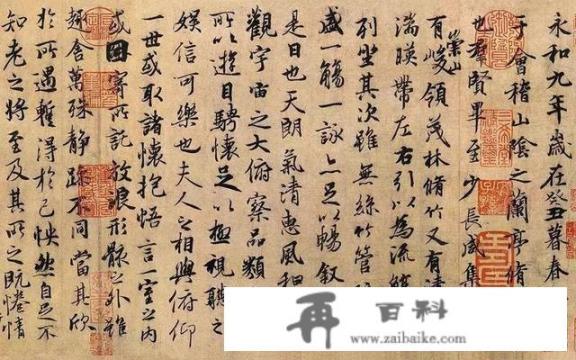 永和九年歲在癸丑暮春
于會稽山陰之蘭亭脩
也羣賢畢至少長咸集
有崇山峻領茂林脩竹又有清
湍暎帶左右引以為流
列坐其次雖無絲竹管
盛一觴一詠亦足以暢叙
是日也天朗氣清惠風和
觀宇宙之大俯察品類
所以遊目騁懷足以極視聽之
娛信可樂也夫人之相與俯仰
一世或取諸懷抱悟言一室之內
或因寄所託放浪形骸之外雖
趣舍萬殊靜躁不同當其欣
於所遇暫得於己怏然自足不
知老之將至及其所之既惓情
再百科
www.zaibaike.com